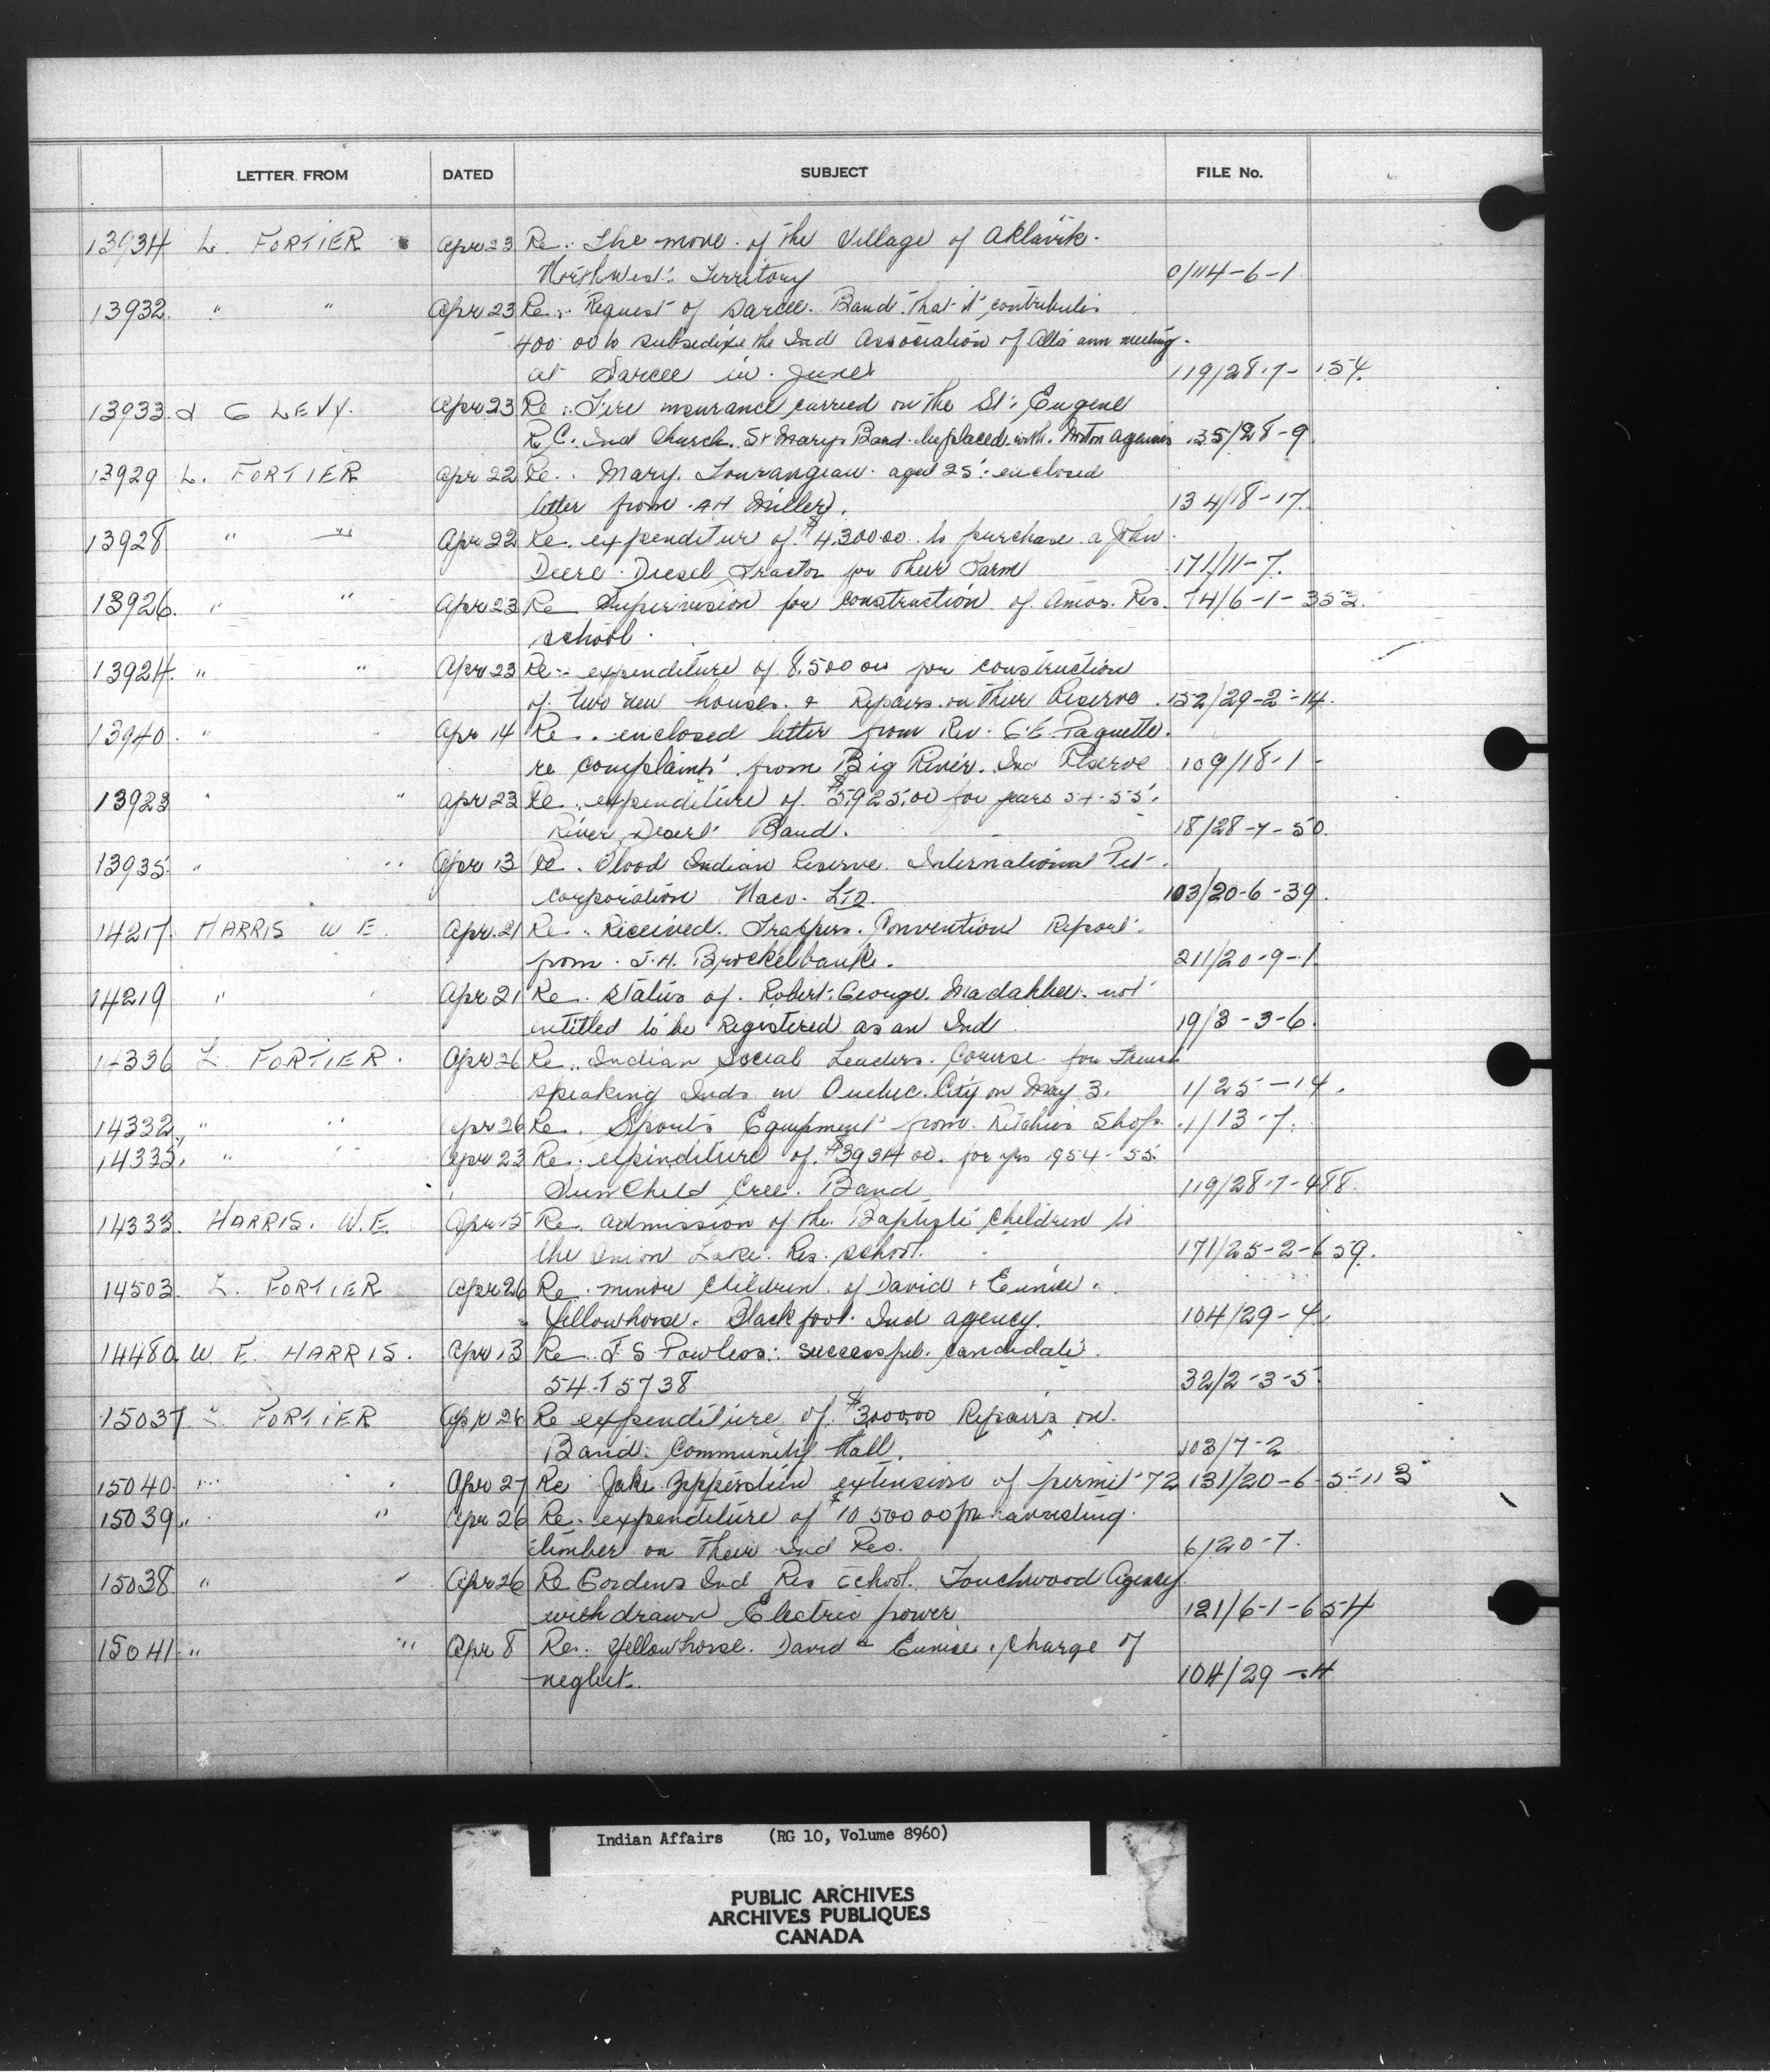 LETTER FROM DATED SUBJECT FILE No.
13934 L. FORTIER Apr 23 Re. The move of the Village of Aklavik
NorthWest Territory 0/114-6-1
13932 " " Apr 23 Re. Request of Sarcee Band that it contributes
400 00 to subsidize the Ind Association of Alta ann meeting
at Sarcee in June 119/28-7-154
13933 G LEVY. Apr 23 Re. Fire insurance carried on the St. Eugene
R.C. Ind Church. St Marys Band be placed with agencies 135/28-9
13929 L. FORTIER Apr 22 Re. Mary Tourangeau aged 25 enclosed
letter from AH Miller. 134/18-17
13928 " " Apr 22 Re. expenditure of $4,300 00 to purchase a John
Deere Diesel Tractor for their Farm 171/11-7
13926 " " Apr 23 Re Supervision for construction of Amos Res. 74/6-1-352
school
13924 " " Apr 23 Re expenditure of 8,500 00 for construction
of two new houses & Repairs on their Reserve 152/29-2-14
13940 " " Apr 14 Re. enclosed letter from Rev. G.E. Paquette
re complaints from Big River Ind Reserve 109/18-1
13923 " " Apr 23 Re. expenditure of $5,925.00 for years 54-55
River Desert Band. 18/28-7-50
13935 " " Apr 13 Re. Blood Indian Reserve International Pet
corporation LTD. 103/20-6-39
14217 HARRIS W E. Apr. 21 Re. Received Trappers Convention Report
from J.H. Brockelbank. 211/20-9-1
14219 " " Apr 21 Re. Status of Robert George Madahbee not
entitled to be Registered as an Ind 19/3-3-6
14336 L. FORTIER. Apr 26 Re. Indian Social Leaders Course for French
speaking Inds in Quebec City on May 3. 1/25-14
14332 " " Apr 26 Re. Sports Equipment from Ritchies Shop 1/13-7
14335 " " Apr 23 Re. expenditure of $3934 00 for yrs 1954-55
Sun Child Cree Band 119/28-7-488
14333 HARRIS. W.E. Apr 15 Re. admission of the Baptiste children to
the Onion Lake Res. school. 171/25-2-659
14503 L. FORTIER Apr 26 Re. minor children of David & Eunice
Yellowhorse. Blackfoot Ind agency. 104/29-4
14480 W E. HARRIS. Apr 13 Re. J S Powless: successful candidate
54-T 5738 32/2-3-5
15037 L FORTIER Apr 26 Re expenditure of $3,000.00 Repairs on
Band Community Hall. 103/7-2
15040 " " Apr 27 Re Jake extension of permit 72 131/20-6-5-113
15039 " " Apr 26 Re. expenditure of $10 500 00 for harvesting
timber on their Ind Res. 6/20-7
15038 " " Apr 26 Re Gordens Ind Res school. Touchwood Agency
withdrawn Electric power 121/6-1-654
15041 " " Apr 8 Re. Yellowhorse. David & Eunice, charge of
neglect. 104/29-4
Indian Affairs (RG 10, Volume 8960)
PUBLIC ARCHIVES
ARCHIVES PUBLIQUES
CANADA